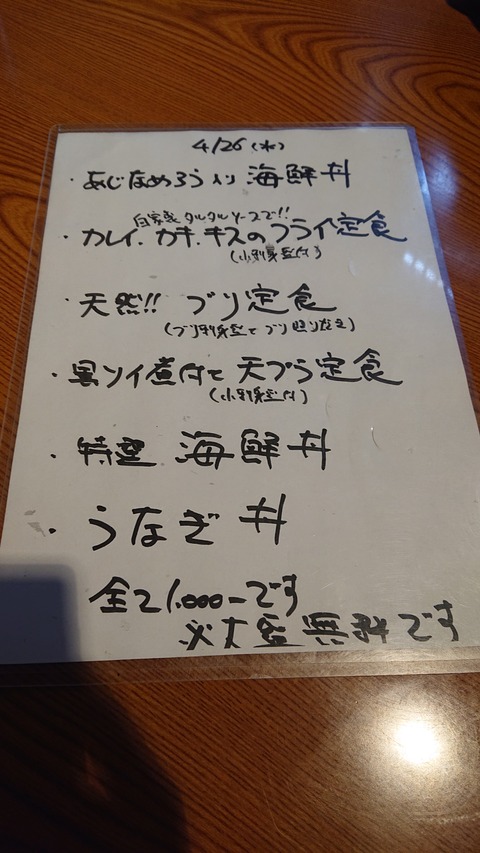 4/26(水)
・あじなめろう入り 海鮮丼
自家製タルタルソースで!!
・カレイ.カキ.キスのフライ定食
(小刺身盛付)
・天然!! ブリ定食
(ブリ刺身盛とブリ照り焼き)
・黒ソイ煮付と天プラ定食
(小刺身盛付)
・特盛 海鮮丼
・うなぎ丼
全て1.000-です
※大盛無料です